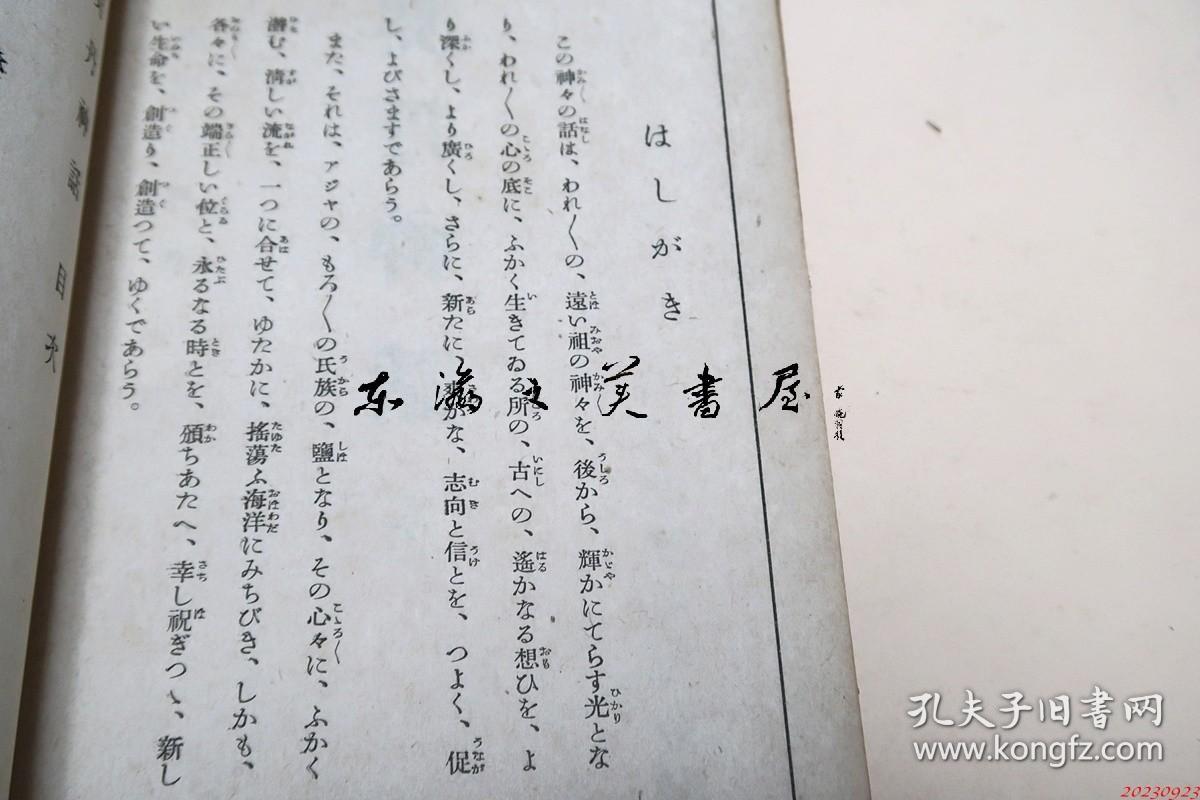 はしがき
この神々の話は、われ〳〵の、遠い祖の神々を、後から、輝かにてらす光とな
り、われ〳〵の心の底に、ふかく生きてゐる所の、古への、遙かなる想ひを、よ
り深くし、より廣くし、さらに、新たに かな、志向と信とを、つよく、促
し、よびさますであらう。
また、それは、アジヤの、もろ〳〵の氏族の、鹽となり、その心々に、ふかく
潛む、淸しい流を、一つに合せて、ゆたかに、搖蕩ふ海洋にみちびき、しかも、
各々に、その端正しい位と、永るなる時とを、頒ちあたへ、幸し祝ぎつゝ、新し
い生命を、創造り、創造つて、ゆくであらう。
神話目次
东瀛文美書屋
孔夫子旧书网
www.kongfz.com
20230923